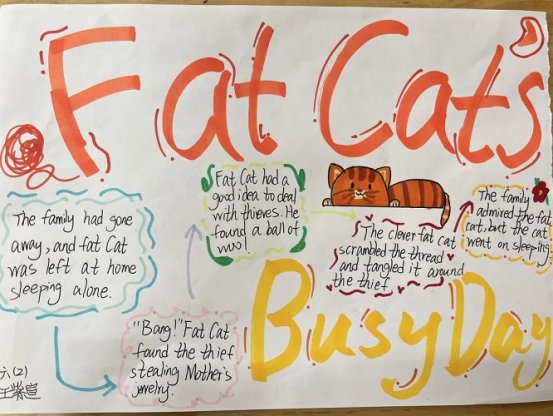 Fat Cat's
The family had gone
away, and fat Cat
was left at home
sleeping alone.
"Bang!" Fat Cat
found the thief
stealing Mother's
jewelry.
Fat Cat had a
good idea to deal
with thieves. He
found a ball of
The clever fat cat
scrambled the thread
and tangled it around
the thief.
The family
admired the fat
cat, but the cat
went on sleeping.
Busy Day
六(2)